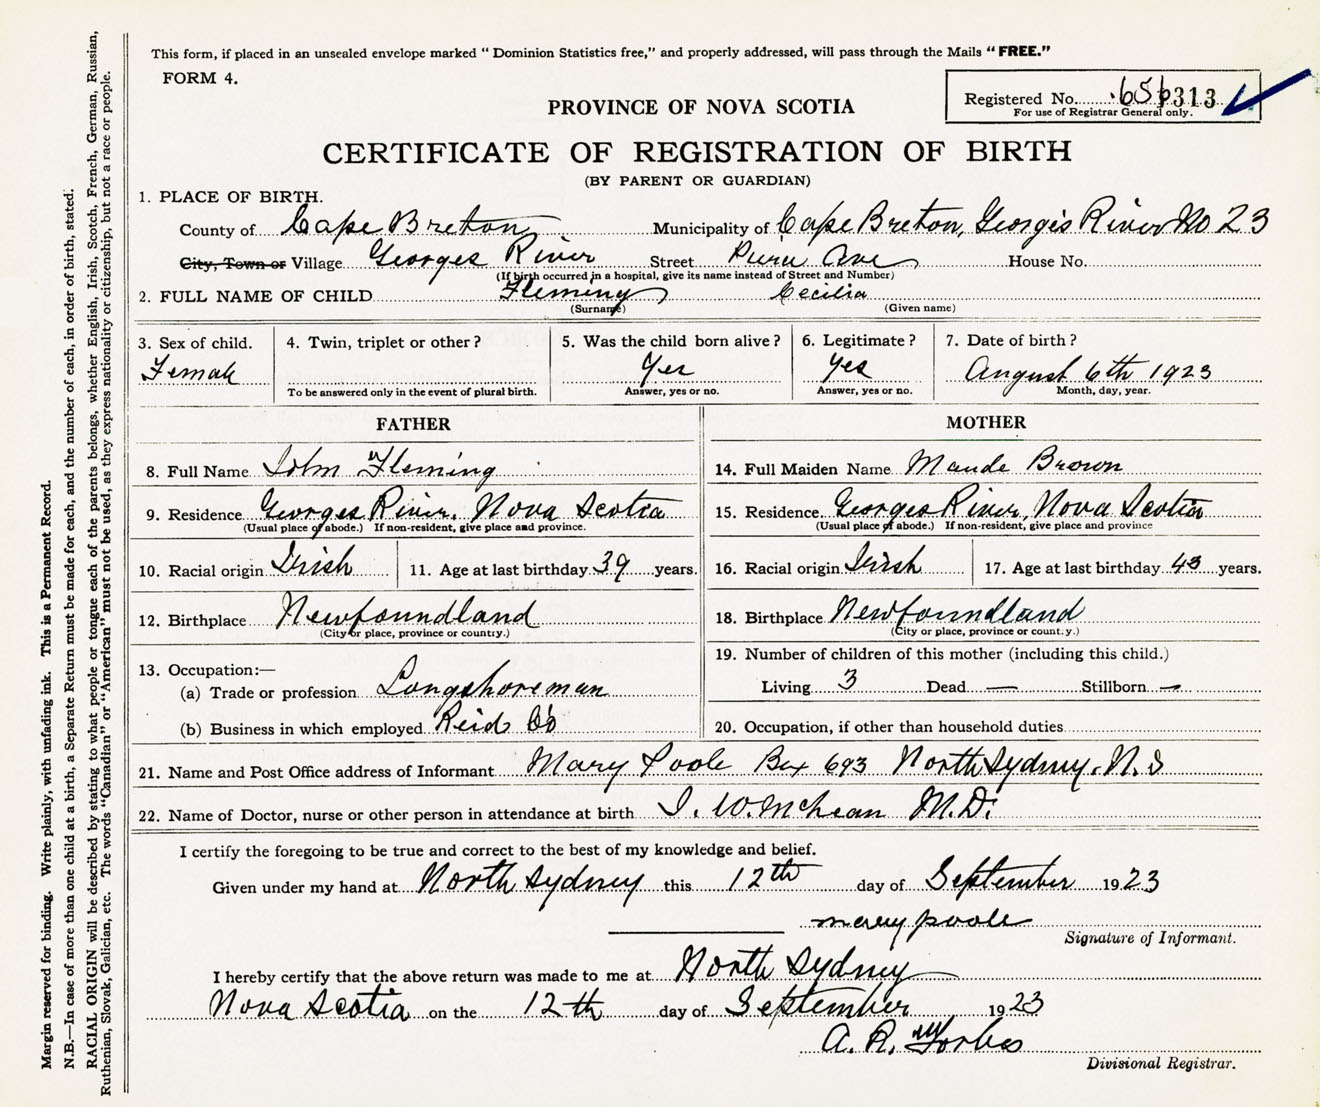 This form, if placed in an unsealed envelope marked “ Dominion Statistics free,” and properly addressed, will pass through the Mails “ FREE.”
FORM 4.
Registered No. 313
For use of Registrar General only.
PROVINCE OF NOVA SCOTIA
CERTIFICATE OF REGISTRATION OF BIRTH
(BY PARENT OR GUARDIAN)
1. PLACE OF BIRTH.
County of Cape Breton Municipality of Cape Breton, Georges River No 23
City, Town or Village Georges River Street Ave House No.
(If birth occurred in a hospital, give its name instead of Street and Number)
2. FULL NAME OF CHILD Fleming Cecilia
(Surname) (Given name)
3. Sex of child. 4. Twin, triplet or other? 5. Was the child born alive? 6. Legitimate? 7. Date of birth?
Female Yes Yes August 6th 1923
To be answered only in the event of plural birth. Answer, yes or no. Answer, yes or no. Month, day, year.
FATHER MOTHER
8. Full Name John Fleming 14. Full Maiden Name Maude Brown
9. Residence Georges River, Nova Scotia 15. Residence. Georges River, Nova Scotia
(Usual place of abode.) If non-resident, give place and province. (Usual place of abode.) If non-resident, give place and province
10. Racial origin Irish 11. Age at last birthday 39 years. 16. Racial origin Irish 17. Age at last birthday 43 years.
12. Birthplace Newfoundland 18. Birthplace Newfoundland
(City or place, province or country.) (City or place, province or country.)
13. Occupation:— 19. Number of children of this mother (including this child.)
(a) Trade or profession Longshoreman Living 3 Dead — Stillborn —
(b) Business in which employed Reid Co 20. Occupation, if other than household duties
21. Name and Post Office address of Informant Mary Poole Box 693 North Sydney. N.S
22. Name of Doctor, nurse or other person in attendance at birth J. W. McLean M.D.
I certify the foregoing to be true and correct to the best of my knowledge and belief.
Given under my hand at North Sydney this 12th day of September 1923
mary poole
Signature of Informant.
I hereby certify that the above return was made to me at North Sydney
Nova Scotia on the 12th day of September 1923
A. R. Forbes
Divisional Registrar.
Margin reserved for binding. Write plainly, with unfading ink. This is a Permanent Record.
N.B.—In case of more than one child at a birth, a Separate Return must be made for each, and the number of each, in order of birth, stated.
RACIAL ORIGIN will be described by stating to what people or tongue each of the parents belongs, whether English, Irish, Scotch, French, German, Russian,
Ruthenian, Slovak, Galician, etc. The words “Canadian” or “American” must not be used, as they express nationality or citizenship, but not a race or people.